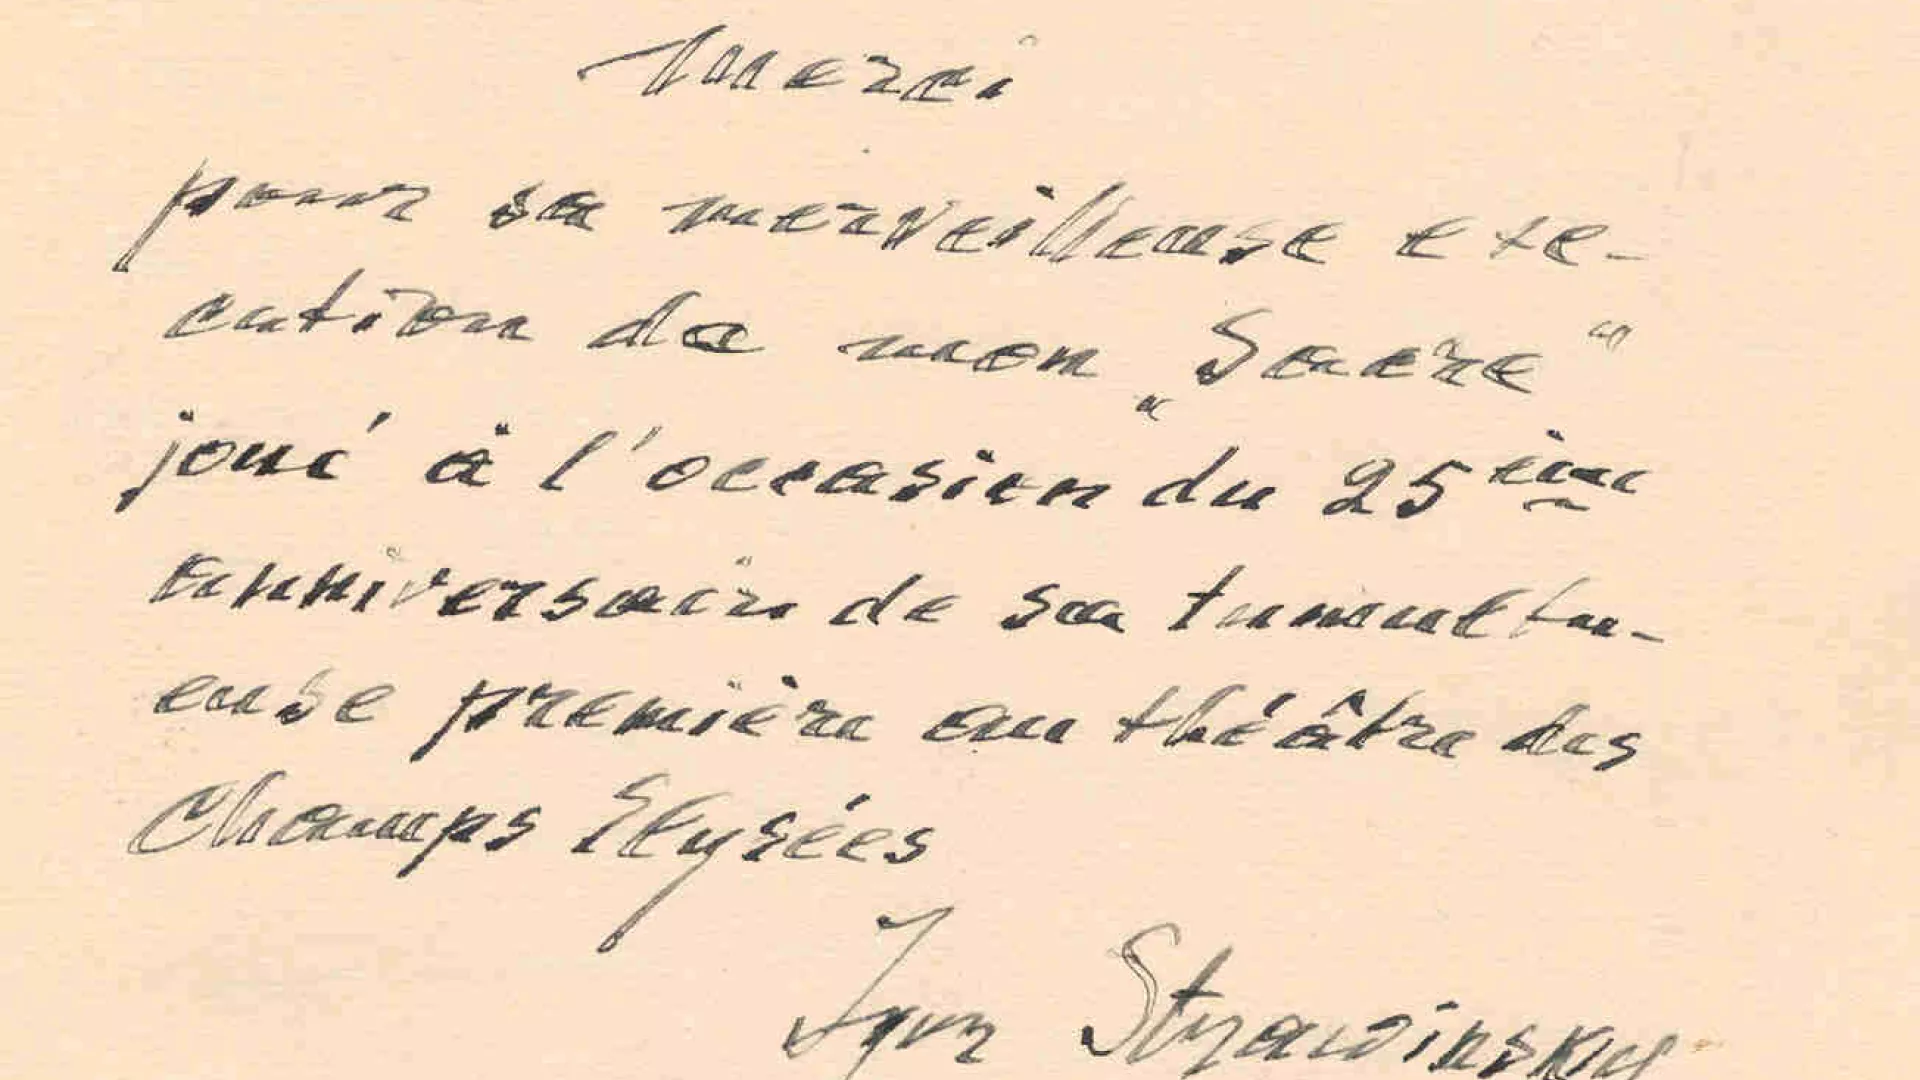 Merci
pour sa merveilleuse exe-
cution de mon „Sacre“
joué à l'occasion du 25ième
anniversaire de sa tumultu-
euse première au théâtre des
Champs Elysées
Igor Strawinsky